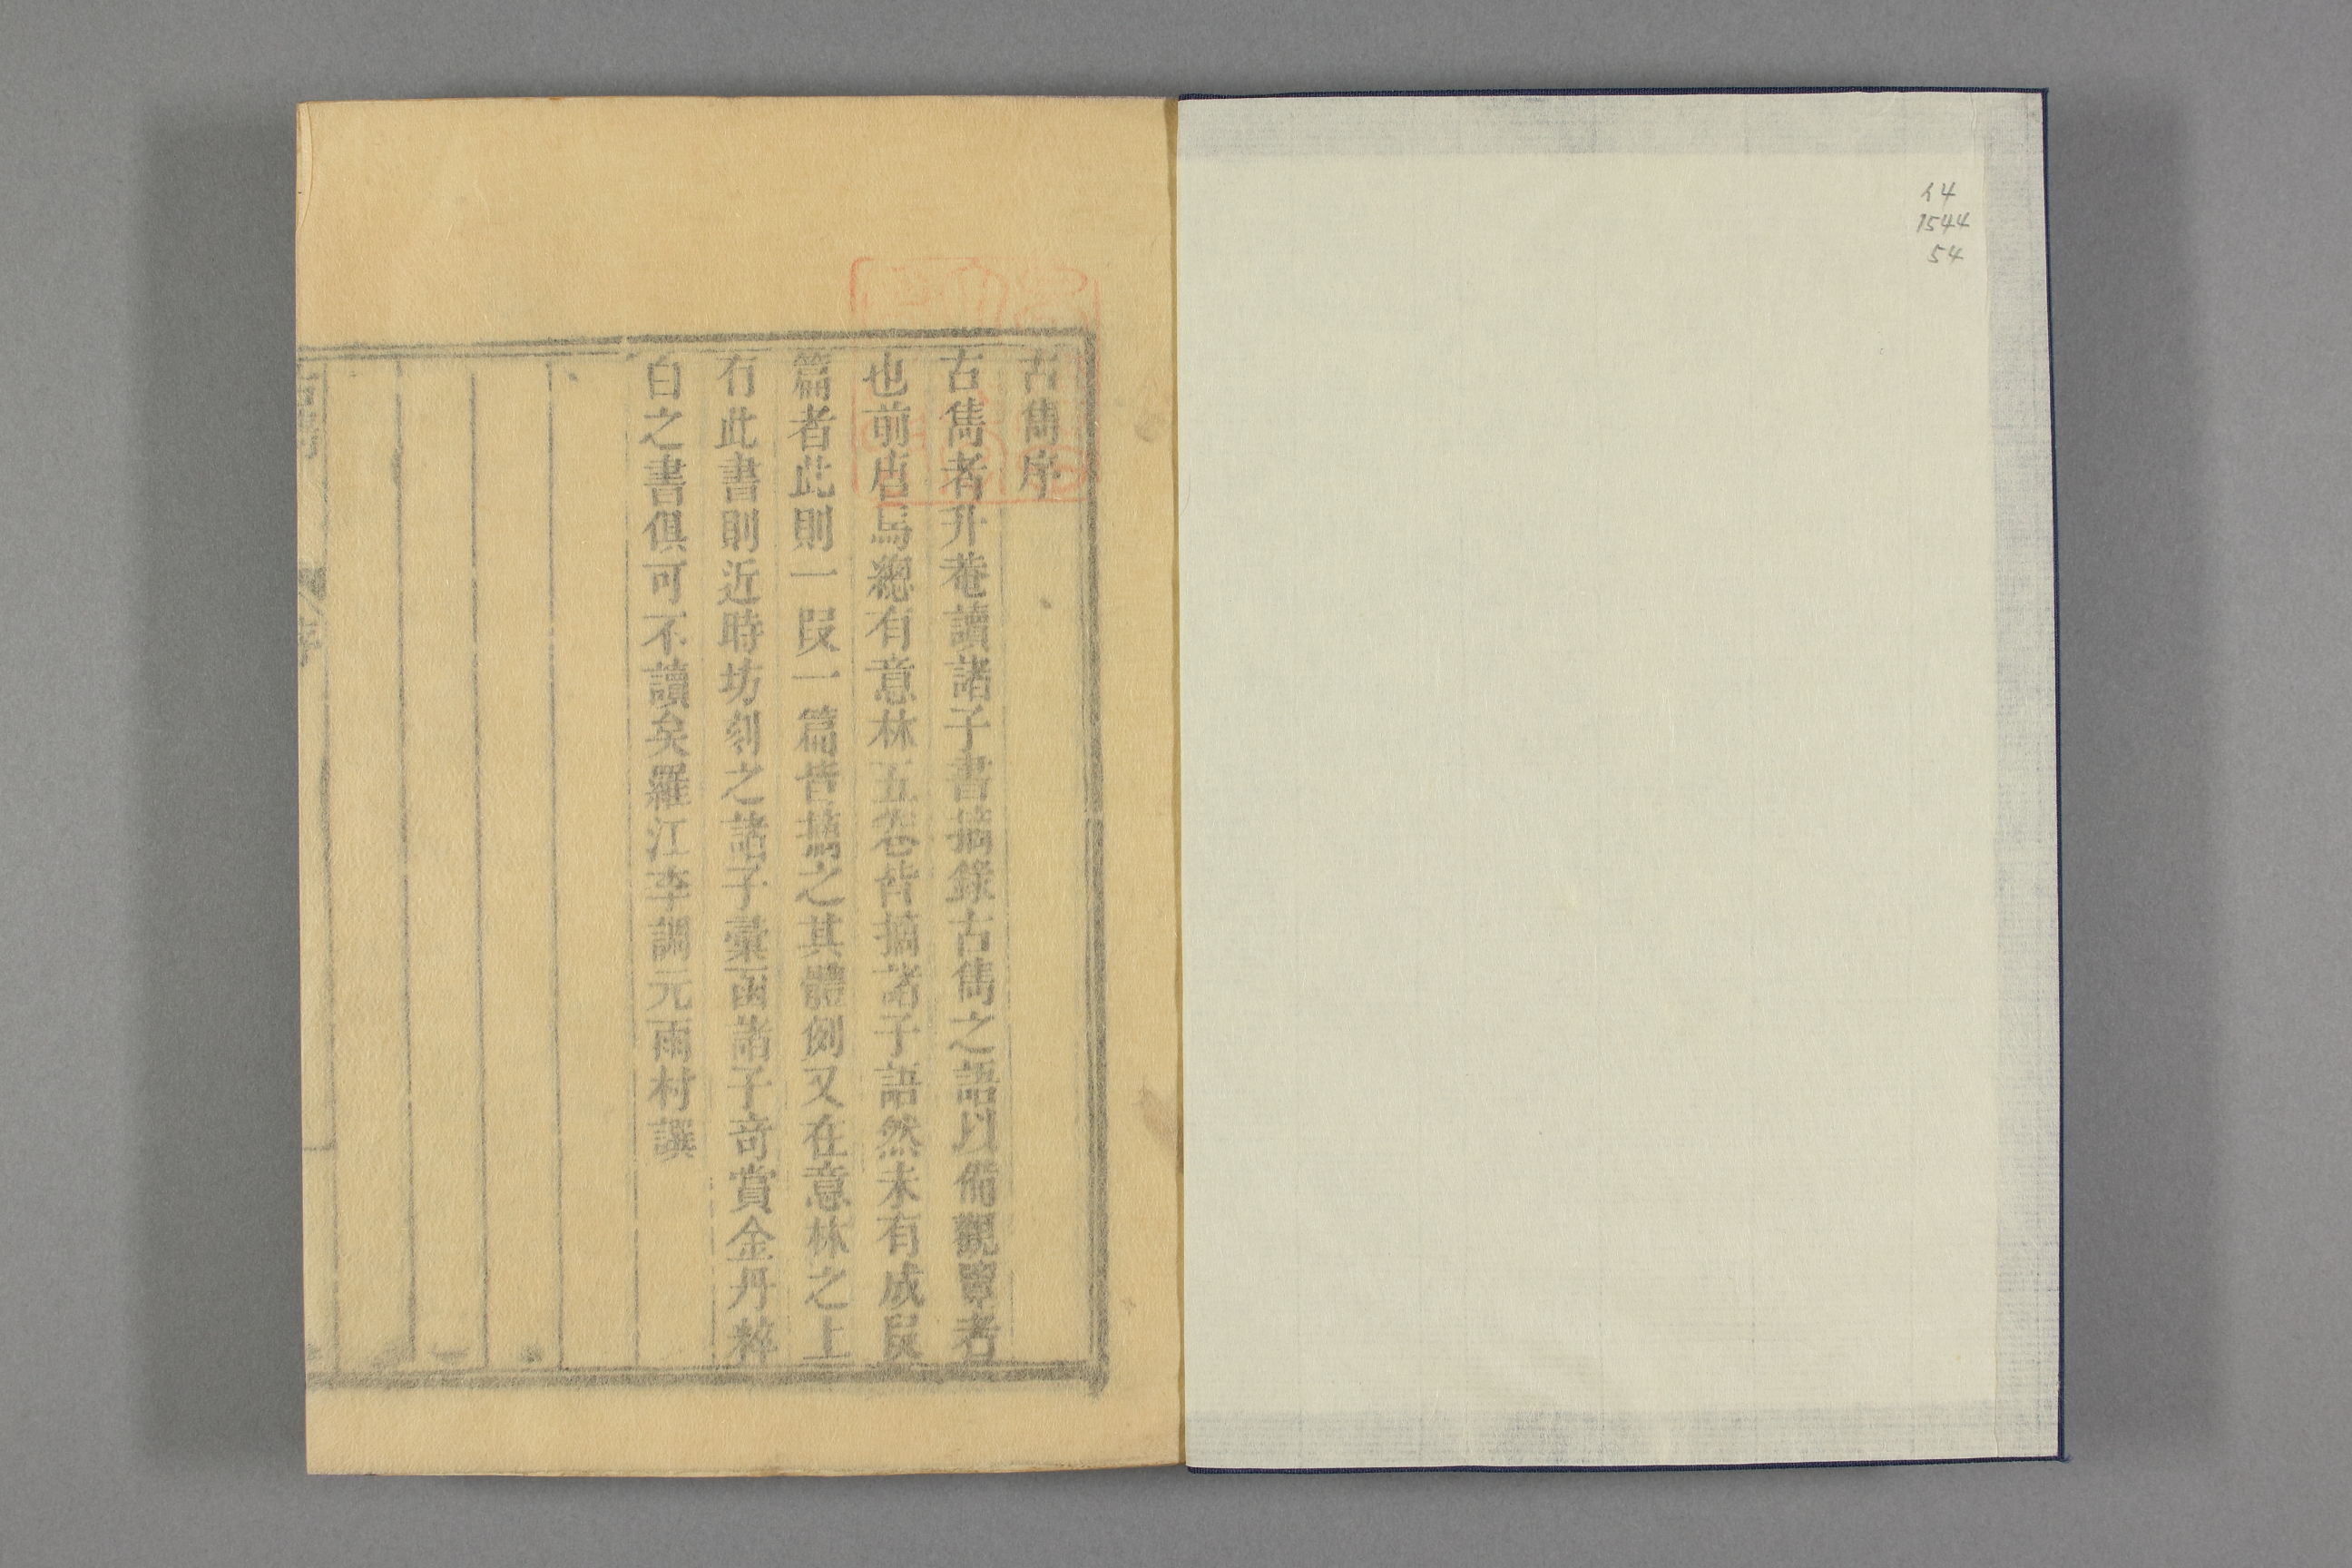 ⅰ4
1544
54
古雋序
古雋者升菴讀諸子書摘錄古雋之語以備觀覽者
也前唐馬總有意林五卷皆摘諸子語然未有成段
篇者此則一段一篇皆摘之其體例又在意林之上
有此書則近時坊刻之諸子彙函諸子奇賞金丹粹
白之書俱可不讀矣羅江李調元雨村譔
古雋
序